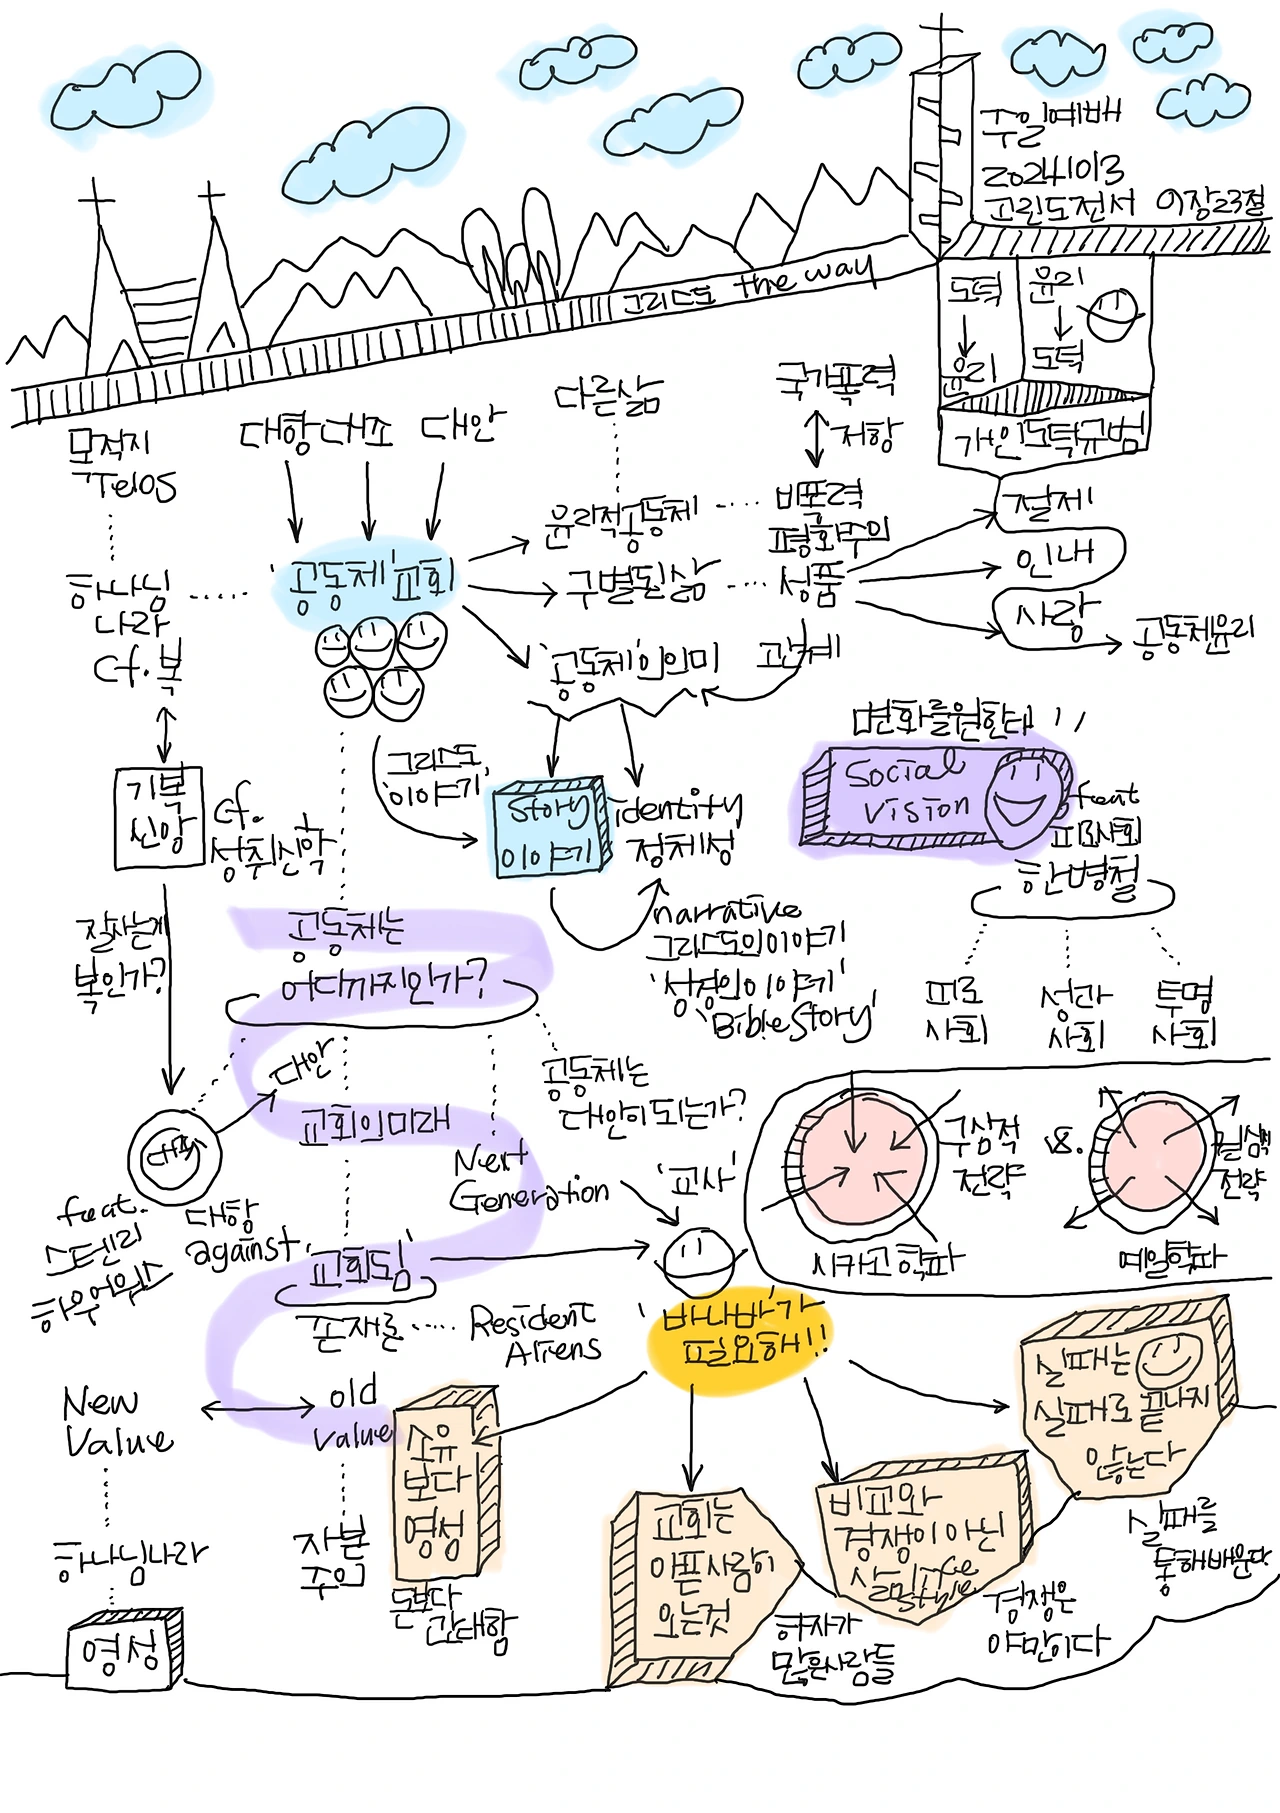 주일예배
20241013
고린도전서 01장23절
그리스도 the way
도덕
윤리
윤리
도덕
개인도덕규범
목적지
Telos
대항 대조 대안
다른삶
국가폭력
저항
윤리적공동체
비폭력
평화주의
절제
하나님
나라
cf. 복
'공동체' 교회
구별된삶
성품
인내
사랑
공동체윤리
'공동체'의의미
관계
기복
신앙
cf.
성취신학
그리스도
'이야기'
story
이야기
identity
정체성
변화를원한다
Social
Vision
feat
피로사회
한병철
잘사는게
복인가?
공동체는
어디까지인가?
narrative
그리스도의이야기
'성경의이야기'
'Bible Story'
피로
사회
성과
사회
투명
사회
대안
공동체는
대안이되는가?
교회의미래
Next
Generation
'교사'
구상적
전략
vs.
전략
시카고학파
예일학파
feat.
스탠리
하우어워스
대항
against
'교회됨'
존재론
Resident
Aliens
'바나바'가
필요해!!
New
Value
old
value
소유
보다
영성
돈보다
환대함
자본
주의
하나님나라
영성
교회는
아픈사람이
오는것
환자가
많은사람들
비교와
경쟁이 아닌
경쟁은
야만이다
실패는
실패로 끝나지
않는다
실패를
통해배운다